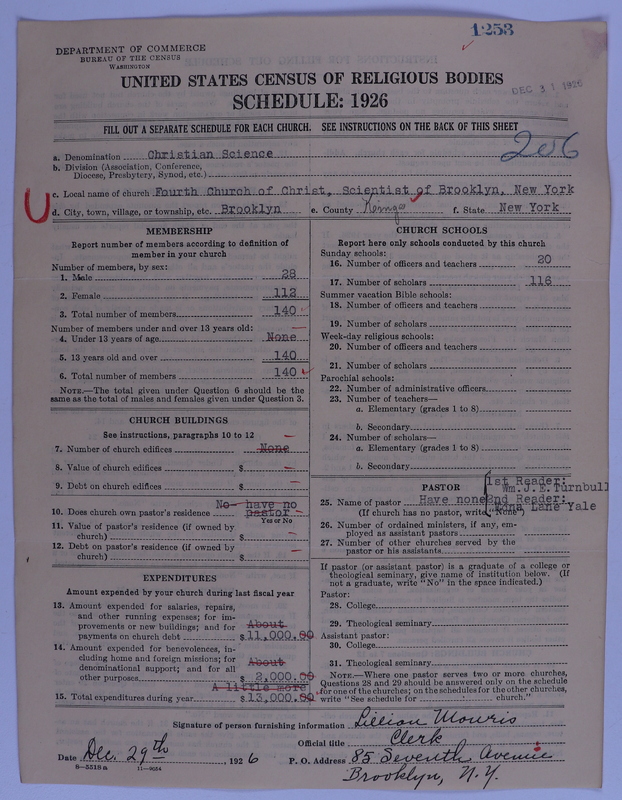 1253
DEPARTMENT OF COMMERCE
BUREAU OF THE CENSUS
WASHINGTON
UNITED STATES CENSUS OF RELIGIOUS BODIES
SCHEDULE: 1926
DEC 31 1926
FILL OUT A SEPARATE SCHEDULE FOR EACH CHURCH. SEE INSTRUCTIONS ON THE BACK OF THIS SHEET
206
a. Denomination Christian Science
b. Division (Association, Conference, Diocese, Presbytery, Synod, etc.)
c. Local name of church Fourth Church of Christ, Scientist of Brooklyn, New York
d. City, town, village, or township, etc. Brooklyn e. County Kings f. State New York
MEMBERSHIP
Report number of members according to definition of
member in your church
Number of members, by sex:
1. Male 28
2. Female 112
3. Total number of members 140
Number of members under and over 13 years old:
4. Under 13 years of age None
5. 13 years old and over 140
6. Total number of members 140
NOTE.—The total given under Question 6 should be the
same as the total of males and females given under Question 3.
CHURCH BUILDINGS
See instructions, paragraphs 10 to 12
7. Number of church edifices None
8. Value of church edifices $
9. Debt on church edifices $
10. Does church own pastor's residence No— have no
pastor
Yes or No
11. Value of pastor's residence (if owned by
church) $
12. Debt on pastor's residence (if owned by
church) $
EXPENDITURES
Amount expended by your church during last fiscal year
13. Amount expended for salaries, repairs,
and other running expenses; for im-
provements or new buildings; and for About
payments on church debt $11,000.00
14. Amount expended for benevolences, in-
cluding home and foreign missions; for
denominational support; and for all About
other purposes $ 2,000.00
A little more
15. Total expenditures during year $13,000.00
CHURCH SCHOOLS
Report here only schools conducted by this church
Sunday schools:
16. Number of officers and teachers 20
17. Number of scholars 116
Summer vacation Bible schools:
18. Number of officers and teachers
19. Number of scholars
Week-day religious schools:
20. Number of officers and teachers
21. Number of scholars
Parochial schools:
22. Number of administrative officers
23. Number of teachers—
a. Elementary (grades 1 to 8)
b. Secondary
24. Number of scholars—
a. Elementary (grades 1 to 8)
b. Secondary
PASTOR
1st Reader:
Wm. J.E. Turnbull
25. Name of pastor Have none 2nd Reader:
(If church has no pastor, write "None") Mona Lane Yale
26. Number of ordained ministers, if any, em-
ployed as assistant pastors
27. Number of other churches served by the
pastor or his assistants
If pastor (or assistant pastor) is a graduate of a college or
theological seminary, give name of institution below. (If
not a graduate, write "No" in the space indicated.)
Pastor:
28. College
29. Theological seminary
Assistant pastor:
30. College
31. Theological seminary
NOTE.—Where one pastor serves two or more churches,
Questions 28 and 29 should be answered only on the schedule
for one of the churches; on the schedules for the other churches,
write "See schedule for church."
Signature of person furnishing information Lillian Mowris
Official title Clerk
Date Dec. 29th, 1926 P. O. Address 85 Seventh Avenue
8—5518a 11—9634 Brooklyn, N.Y.